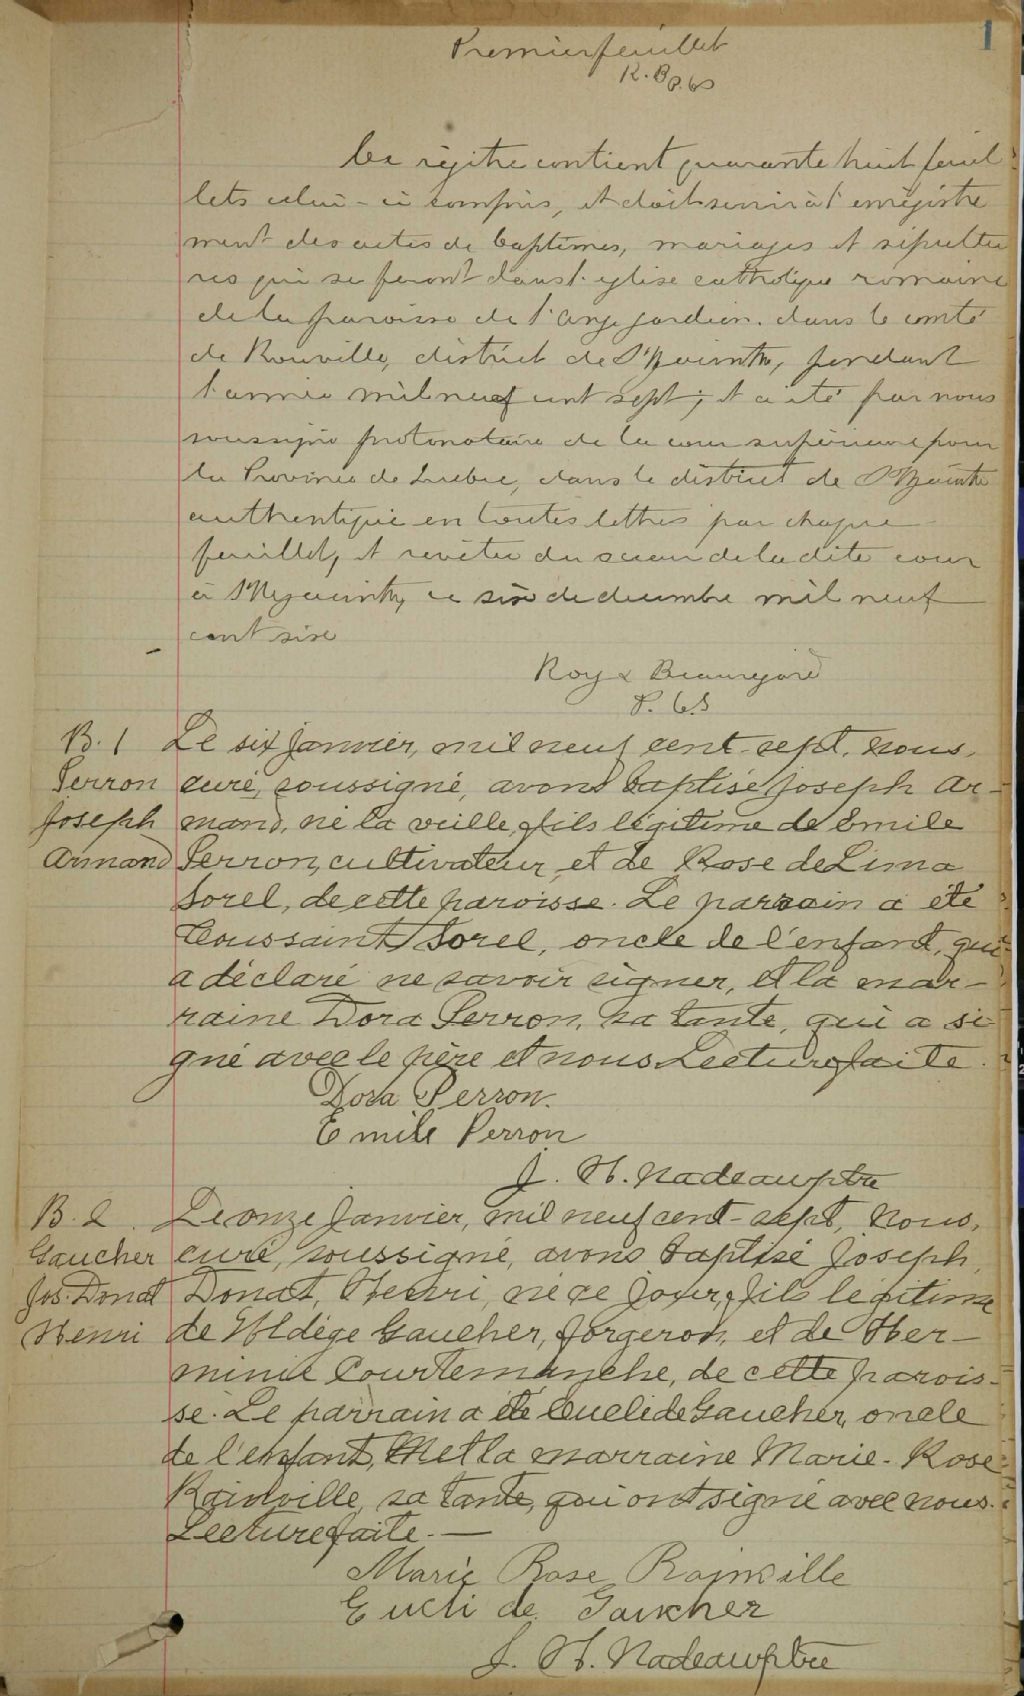 1
Premier feuillet
R. B P. C S
Ce régitre contient quarante huit feuil
lets celui-ci compris, et doit servir à l'enrégistre
ment des actes de baptêmes, mariages et sépultu
res qui se feront dans l'église catholique romaine
de la paroisse de l'Ange gardien. dans le comté
de Rouville, district de St Hyacinthe, pendant
l'année mil neuf cent sept; et a été par nous
soussigné protonotaire de la cour supérieure pour
la Province de Quebec, dans le district de St Hyacinthe
authentiqué en toutes lettres par chaque
feuillet, et revêtu du sceau de la dite cour
à St Hyacinthe, ce six de décembre mil neuf
cent six
Roy & Beauregard
P. C. S
B. 1 Le six janvier, mil neuf cent-sept, nous,
Perron curé, soussigné, avons baptisé Joseph Ar-
Joseph mand, né la veille, fils légitime de Emile
Armand Perron, cultivateur, et de Rose de Lima
Sorel, de cette paroisse. Le parrain a été
Toussaint Sorel, oncle de l'enfant, qui
a déclaré ne savoir signer, et la mar-
raine Dora Perron, sa tante, qui a si-
gné avec le père et nous Lecture faite.
Dora Perron.
Emile Perron
J. H. Nadeau ptre
B. 2. Le onze Janvier, mil neuf cent-sept, Nous,
Gaucher curé, soussigné, avons baptisé Joseph,
Jos. Donat Donat, Henri, né ce jour, fils légitime
Henri de Hldége Gaucher, forgeron, et de Her-
minie Courtemanche, de cette parois-
se. Le parrain a été Euclide Gaucher, oncle
de l'enfant, et la marraine Marie-Rose
Rainville, sa tante, qui ont signé avec nous.
Lecture faite.—
Marie Rose Rainville
Eucli de Gaucher
J. H. Nadeau ptre